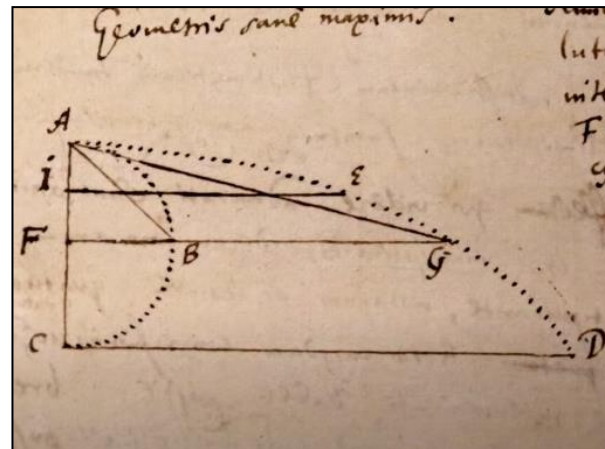 Geometris sanè maximis.
A
I
E
F
B
G
C
D
F